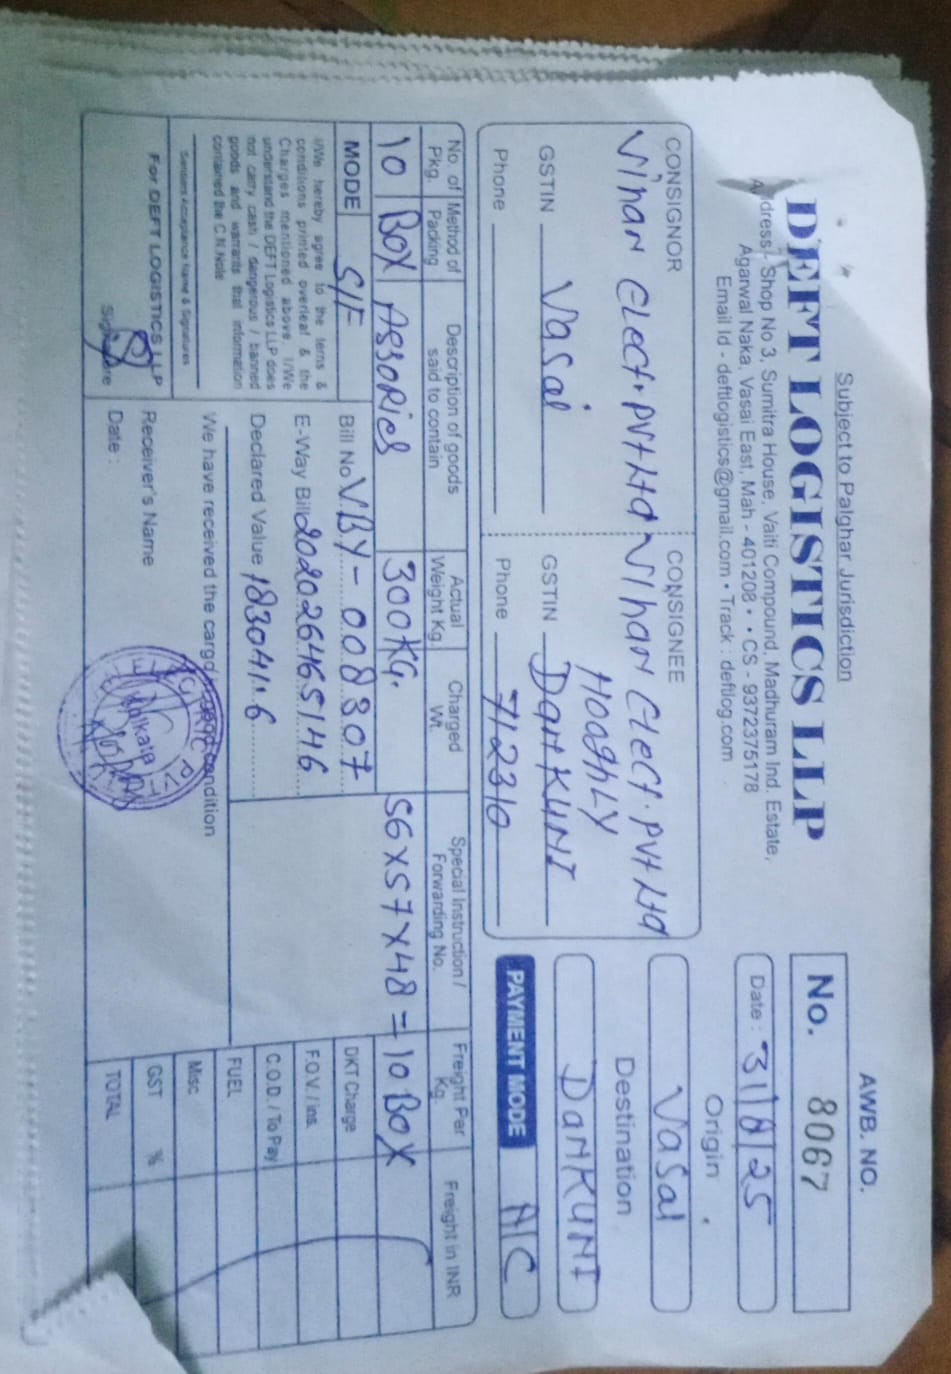 Subject to Palghar Jurisdiction
DEFT LOGISTICS LLP
Address:- Shop No 3, Sumitra House, Vaiti Compound, Madhuram Ind. Estate,
Agarwal Naka, Vasai East, Mah - 401208 • • CS - 9372375178
Email Id - deftlogistics@gmail.com • Track : deftlog.com
AWB. NO.
No. 8067
Date : 31/8/25
Origin
Vasai
Destination
DanKUNI
PAYMENT MODE A/C
CONSIGNOR
Vihan Elect. PVt Ltd
Vasai
GSTIN
Phone
CONSIGNEE
Vihan Elect. PVt Ltd
HooghLY
GSTIN DanKUNI
Phone 712310
No. of Pkg. Method of Packing Description of goods said to contain Actual Weight Kg. Charged Wt. Special Instruction / Forwarding No. Freight Per Kg. Freight in INR
10 BOX Assories 300KG. 56x57x48 = 10 BOX
MODE S/F
Bill No VBY-008307
E-Way Bill 202026465146
Declared Value 183041.6
I/We hereby agree to the terns &
conditions printed overleaf & the
Charges mentioned above. I/We
understand the DEFT Logistics LLP does
not carry cash / dangerous / banned
goods and warrants that information
contained the C.N.Note
Senders Acceptance Name & Signatures
For DEFT LOGISTICS LLP
Signature
We have received the cargo good condition
Receiver's Name
Date :
Kolkata
DKT Charge
F.O.V. / ins.
C.O.D. / To Pay
FUEL
Misc
GST %
TOTAL